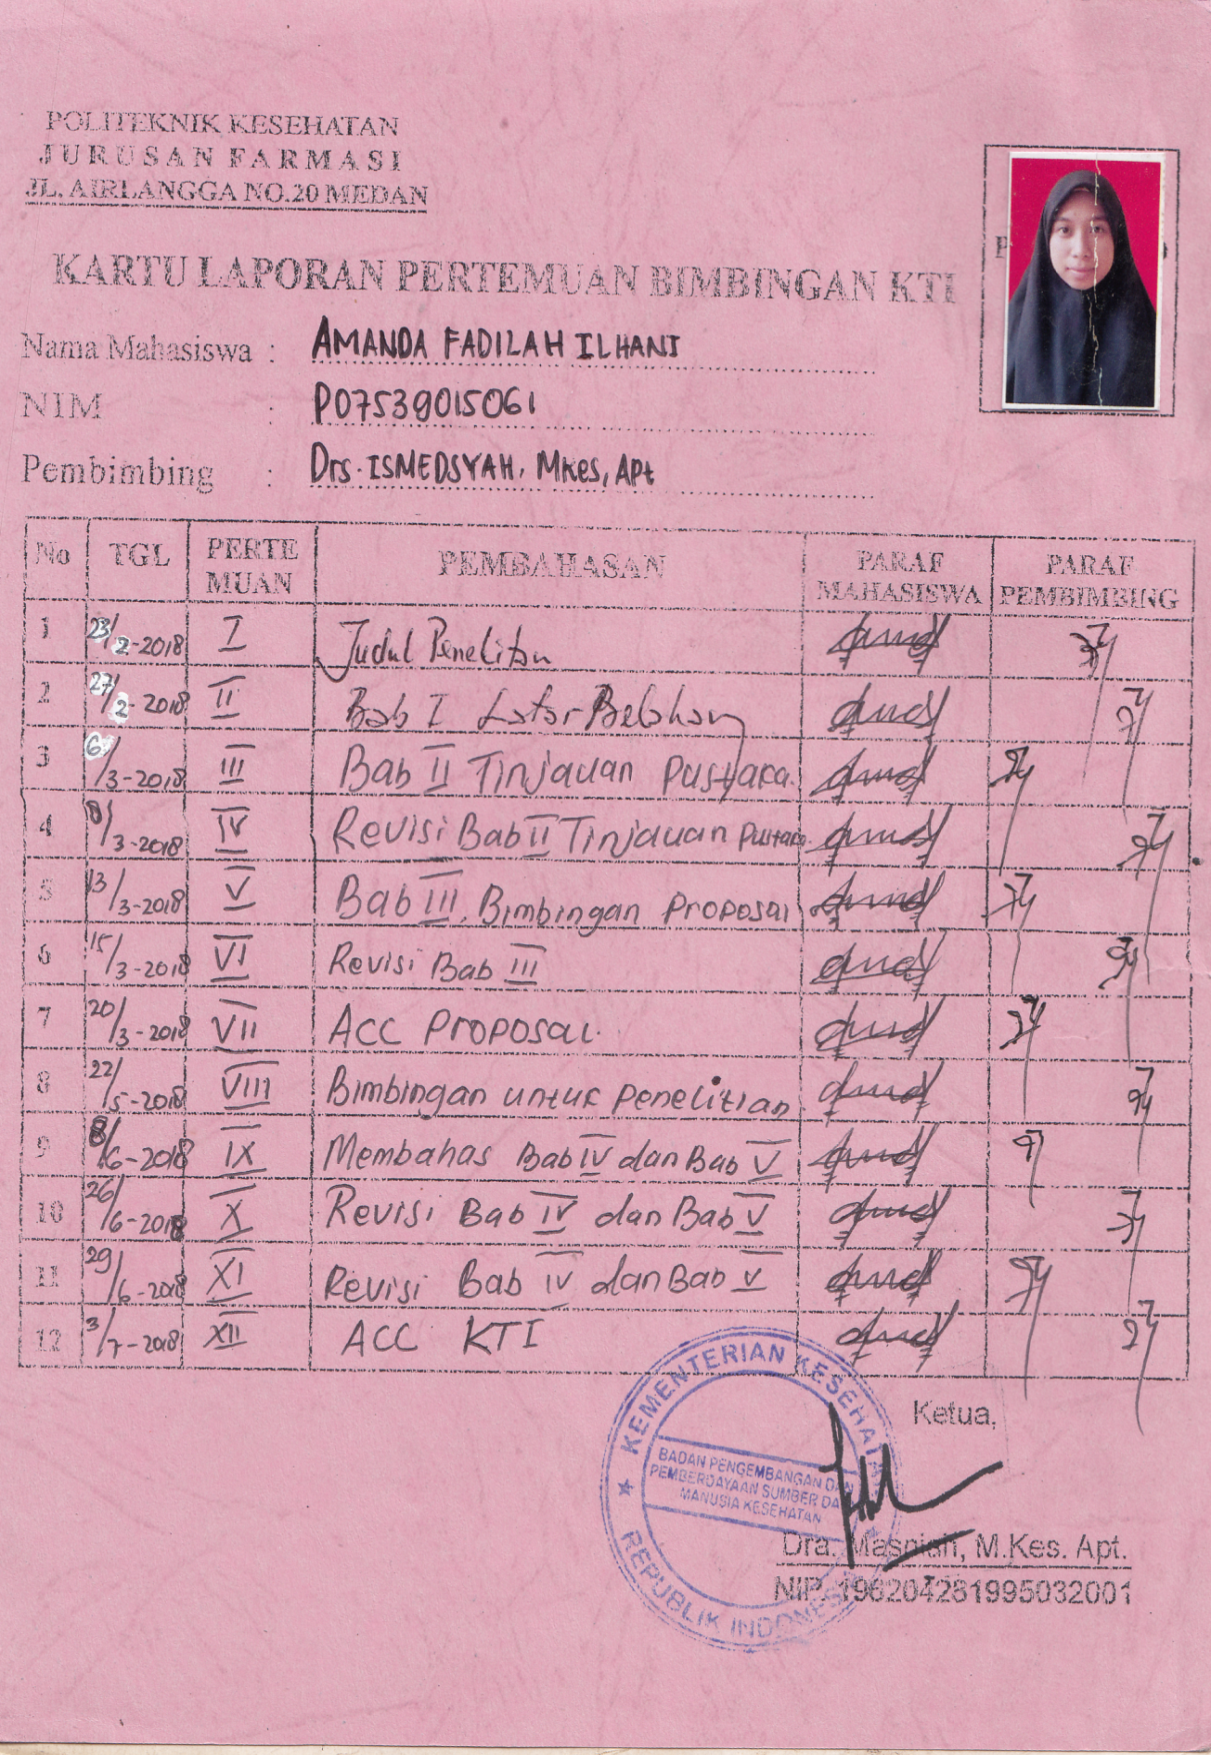 POLITEKNIK KESEHATAN
JURUSAN FARMASI
JL. AIRLANGGA NO.20 MEDAN
KARTU LAPORAN PERTEMUAN BIMBINGAN KTI
Nama Mahasiswa : AMANDA FADILAH ILHANI
NIM : P07539015061
Pembimbing : Drs. ISMEDSYAH, Mkes, Apt
No TGL PERTE MUAN PEMBAHASAN PARAF MAHASISWA PARAF PEMBIMBING
1 23/2-2018 I Judul Penelitian
2 27/2-2018 II Bab I Latar Belakang
3 6/3-2018 III Bab II Tinjauan Pustaka.
4 8/3-2018 IV Revisi Bab II Tinjauan Pustaka
5 13/3-2018 V Bab III, Bimbingan Proposal
6 15/3-2018 VI Revisi Bab III
7 20/3-2018 VII ACC Proposal.
8 22/5-2018 VIII Bimbingan untuk penelitian
9 8/6-2018 IX Membahas Bab IV dan Bab V
10 26/6-2018 X Revisi Bab IV dan Bab V
11 29/6-2018 XI Revisi Bab IV dan Bab V
12 3/7-2018 XII ACC KTI
KEMENTERIAN KESEHATAN
Ketua,
BADAN PENGEMBANGAN DAN
PEMBERDAYAAN SUMBER DAYA
MANUSIA KESEHATAN
REPUBLIK INDONESIA
Dra. Masniah, M.Kes. Apt.
NIP. 196204281995032001